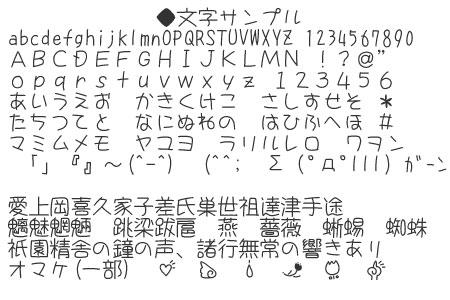 ◆文字サンプル
abcdefghijklmnOPQRSTUVWXYZ 1234567890
ＡＢＣＤＥＦＧＨＩＪＫＬＭＮ　！？＠”
ｏｐｑｒｓｔｕｖｗｘｙｚ　１２３４５６
あいうえお　かきくけこ　さしすせそ　＊
たちつてと　なにぬねの　はひふへほ　＃
マミムメモ　ヤユヨ　ラリルレロ　ワヲン
「」『』～(^-^)　(^^;　Σ(ﾟдﾟlll) ｶﾞｰﾝ
愛上岡喜久家子差氏巣世祖達津手途
魑魅魍魎　跳梁跋扈　燕　薔薇　蜥蜴　蜘蛛
祇園精舎の鐘の声、諸行無常の響きあり
オマケ(一部)